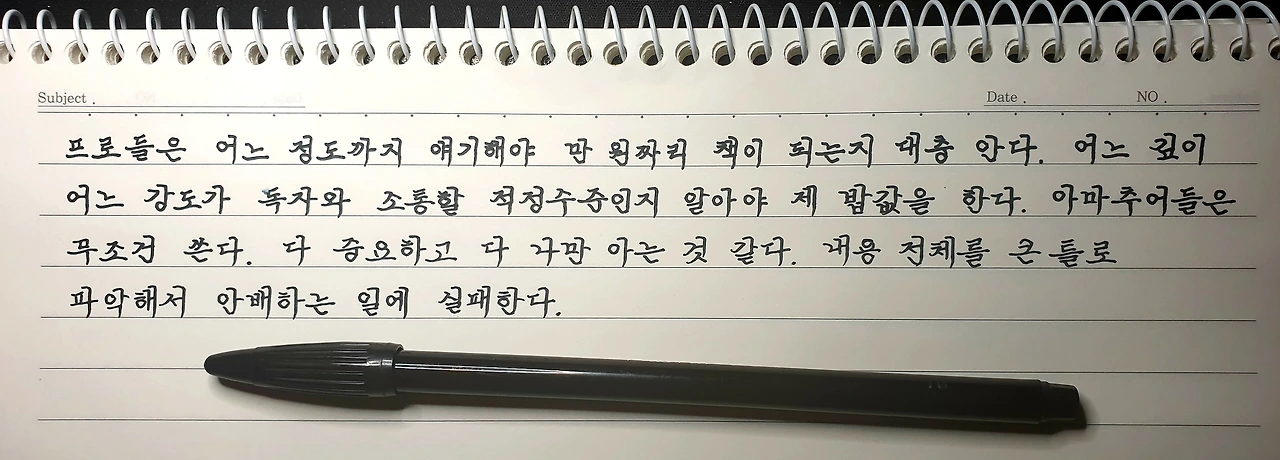 Subject .
Date .
NO .
프로들은 어느 정도까지 얘기해야 만 원짜리 책이 되는지 대충 안다. 어느 깊이
어느 강도가 독자와 소통할 적정수준인지 알아야 제 밥값을 한다. 아마추어들은
무조건 쓴다. 다 중요하고 다 나만 아는 것 같다. 내용 전체를 큰 틀로
파악해서 안배하는 일에 실패한다.